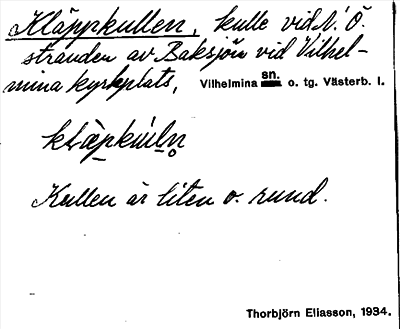 Kläppkullen, kulle vid N. Ö.
stranden av Baksjön vid Vilhel-
mina kyrkplats, Vilhelmina sn. o. tg. Västerb. l.
Kullen är liten o. rund.
Thorbjörn Eliasson, 1934.